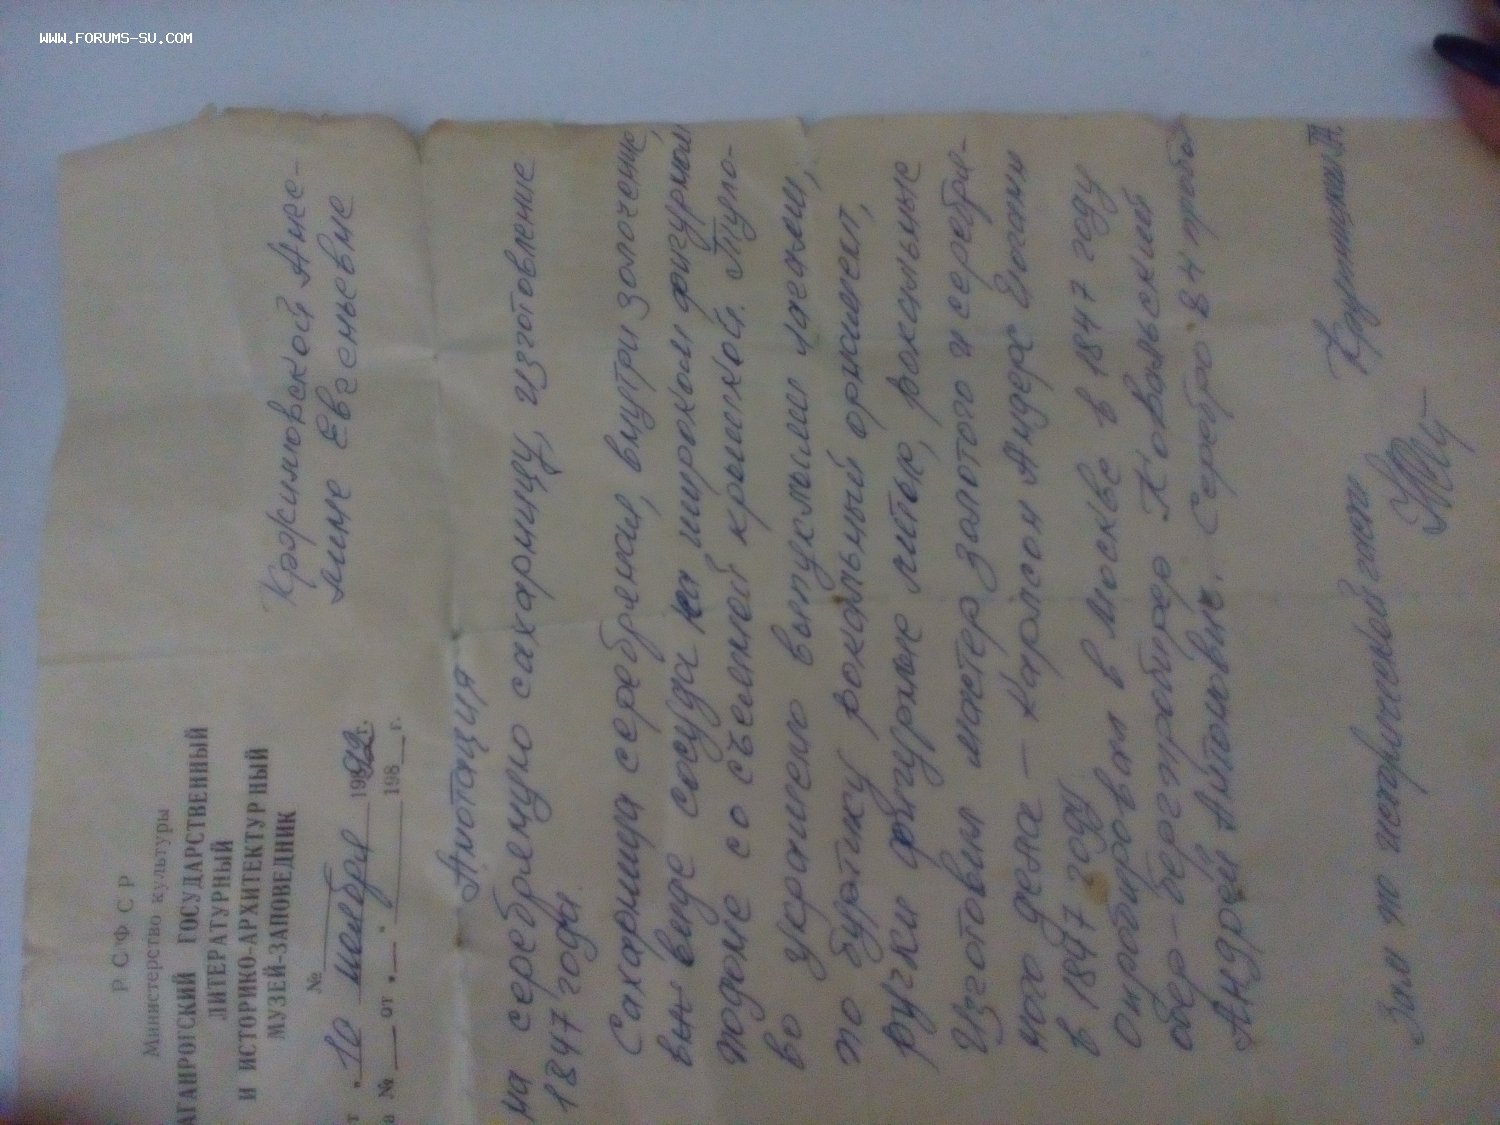 WWW.FORUMS-SU.COM
РСФСР
Министерство культуры
АГАНРОГСКИЙ ГОСУДАРСТВЕННЫЙ
ЛИТЕРАТУРНЫЙ
И ИСТОРИКО-АРХИТЕКТУРНЫЙ
МУЗЕЙ-ЗАПОВЕДНИК
№
т „10 ноября 1992г.
а № от „ " 198 г.
Крэжимовской Анге-
лине Евгеньевне
Анотация
на серебряную сахарницу, изготовление
1847 года.
Сахарница серебряная, внутри золочение,
вын виде сосуда на широком фигурном
подоне со съемной крышкой. Туло-
во украшено выпуклыми лажками,
по буртику рокальный орнамент,
ручки фигурные литые, рокальные
Изготовил мастер золотого и серебря-
ного дела – Карлсон Андерс Иоганн
в 1847 году
Опробирован в Москве в 1847 году
обер-бергпробирер Ковальский
Андрей Антонович. Серебро 84 проба
Зам по исторической части